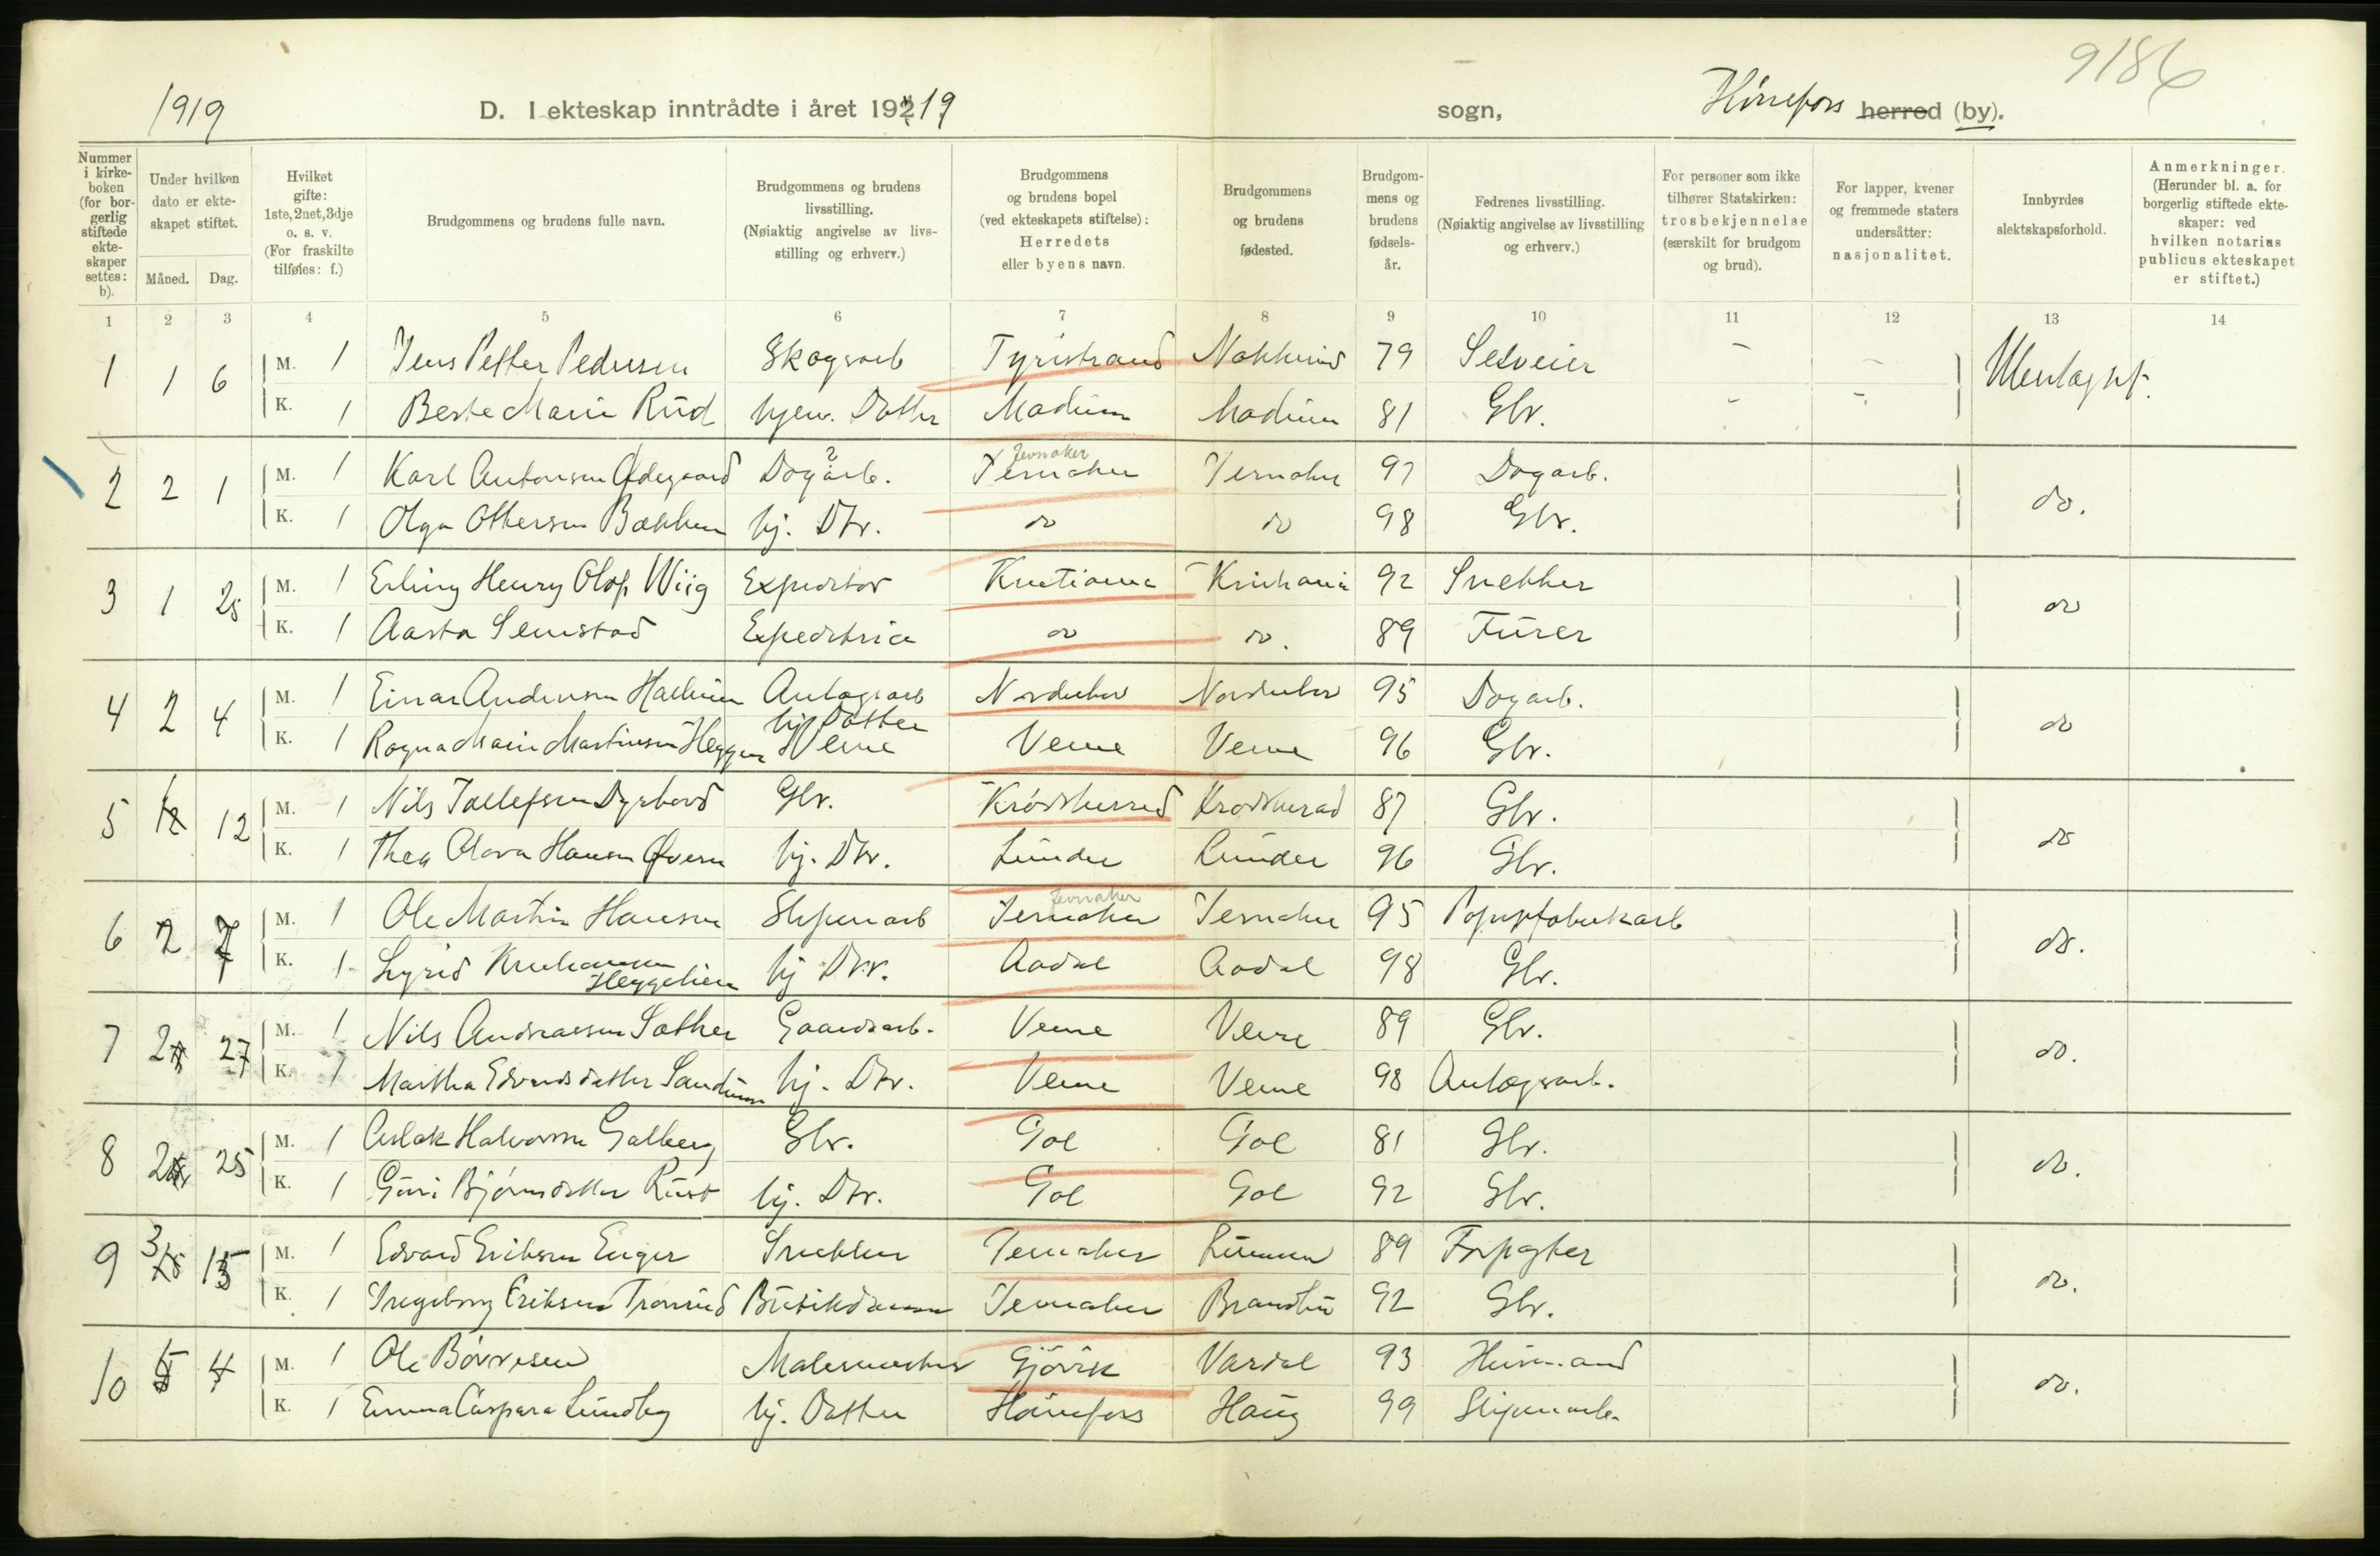 9186
1919
D. I ekteskap inntrådte i året 192 19
sogn,
Hönefoss herred (by).
Nummer i kirkeboken (for borgerlig stiftede ekteskaper settes: b).
Under hvilken dato er ekteskapet stiftet.
Måned. Dag.
Hvilket gifte: 1ste, 2net, 3dje o. s. v. (For fraskilte tilføies: f.)
Brudgommens og brudens fulle navn.
Brudgommens og brudens livsstilling. (Nøiaktig angivelse av livsstilling og erhverv.)
Brudgommens og brudens bopel (ved ekteskapets stiftelse): Herredets eller byens navn.
Brudgommens og brudens fødested.
Brudgommens og brudens fødselsår.
Fedrenes livsstilling. (Nøiaktig angivelse av livsstilling og erhverv.)
For personer som ikke tilhører Statskirken: trosbekjennelse (særskilt for brudgom og brud).
For lapper, kvener og fremmede staters undersåtter: nasjonalitet.
Innbyrdes slektskapsforhold.
Anmerkninger. (Herunder bl. a. for borgerlig stiftede ekteskaper: ved hvilken notarius publicus ekteskapet er stiftet.)
1 2 3 4 5 6 7 8 9 10 11 12 13 14
1 1 6 M. 1 Jens Petter Pedersen Skogsarb Tyristrand Nakkerud 79 Selveier - -
K. 1 Berte Marie Rud hjem. Datter Modum Modum 81 Gbr. - -
2 2 1 M. 1 Karl Antonsen Ødegaard Dagarb. Jevnaker Jevnaker 97 Dagarb.
K. 1 Olga Ottersen Bækken hj. Dtr. do do 98 Gbr. do.
3 1 25 M. 1 Erling Henry Olaf Wiig Expeditor Kristiania Kristiania 92 Snekker
K. 1 Aasta Semstad Expeditrice do do. 89 Furer do
4 2 4 M. 1 Einar Andersen Anlægsarb Norderhov Norderhov 95 Dagarb.
K. 1 Ragna Marie Martinsen Heggen hj Datter Veme Veme Veme 96 Gbr. do
5 12 M. 1 Nils Tollefsen Gbr. Krødsherred Krødsherad 87 Gbr.
K. 1 Thea Olava Hansen Øvern hj. Dtr. Lunder Lunder 96 Gbr. do
6 2 7 M. 1 Ole Martin Hansen Sliperiarb Jevnaker Jevnaker Jevnaker 95 Papirfabrikarb
K. 1 Sigrid Kristiansen Heggelien hj Dtr. Aadal Aadal 98 Gbr. do.
7 2 27 M. 1 Nils Andreassen Sæther Gaardsarb. Veme Veme 89 Gbr.
K. 1 Martha Edvardsdatter Sandum hj. Dtr. Veme Veme 98 Anlægsarb. do.
8 2 25 M. 1 Aslak Halvorsen Galberg Gbr. Gol Gol 81 Gbr.
K. 1 Guri Bjørnsdatter Rust hj. Dtr. Gol Gol 92 Gbr. do.
9 3 15 M. 1 Edvard Eriksen Enger Snekker Jevnaker Lunner 89 Forpagter
K. 1 Ingeborg Eriksen Tronrud Butikdame Jevnaker Brandbu 92 Gbr. do.
10 5 4 M. 1 Ole Børresen Malermester Gjøvik Vardal 93 Husmand
K. 1 Emma Caspara Lundby hj. Datter Hønefoss Haug 99 Sliperiarb. do.